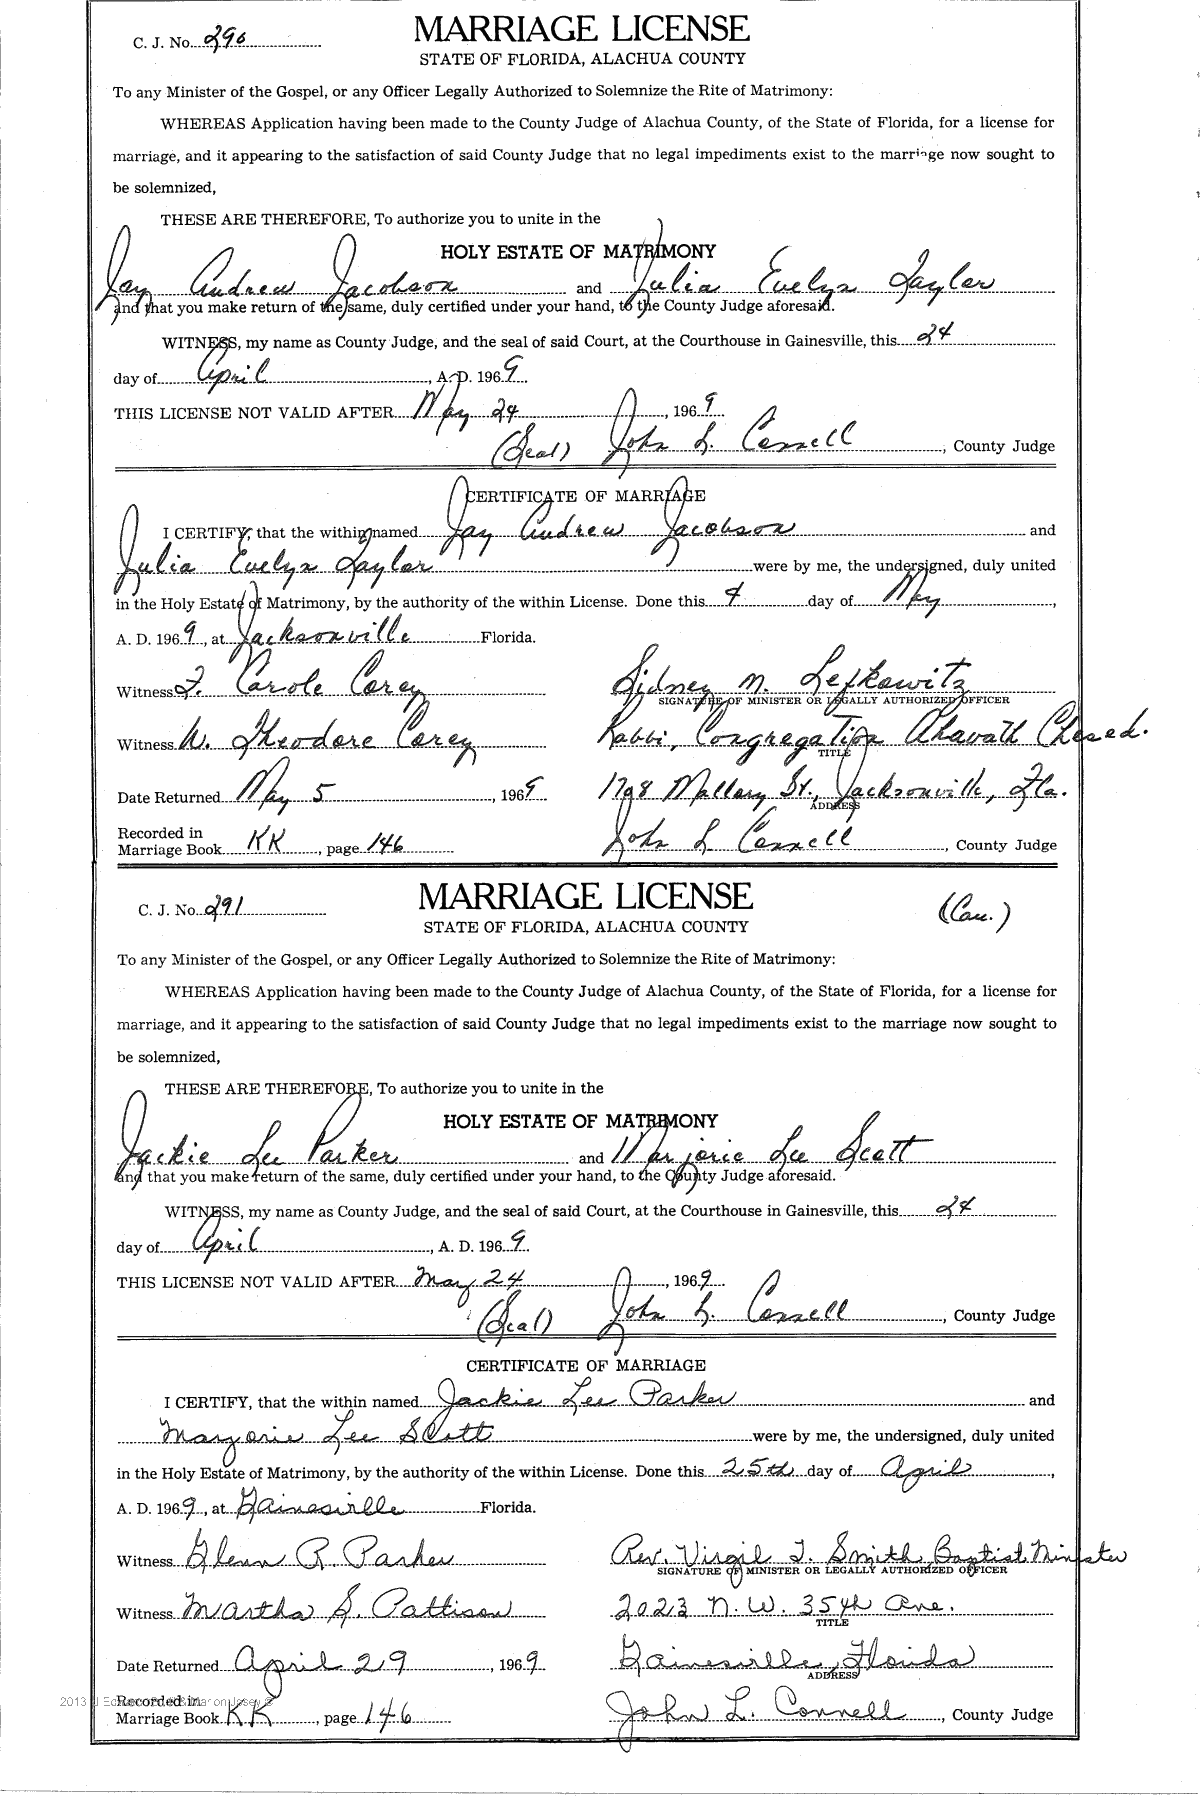 C. J. No. 290
MARRIAGE LICENSE
STATE OF FLORIDA, ALACHUA COUNTY
To any Minister of the Gospel, or any Officer Legally Authorized to Solemnize the Rite of Matrimony:
WHEREAS Application having been made to the County Judge of Alachua County, of the State of Florida, for a license for
marriage, and it appearing to the satisfaction of said County Judge that no legal impediments exist to the marriage now sought to
be solemnized,
THESE ARE THEREFORE, To authorize you to unite in the
HOLY ESTATE OF MATRIMONY
Jay Andrew Jacobson and Julia Evelyn Taylor
and that you make return of the same, duly certified under your hand, to the County Judge aforesaid.
WITNESS, my name as County Judge, and the seal of said Court, at the Courthouse in Gainesville, this 24
day of April, A. D. 1969.
THIS LICENSE NOT VALID AFTER May 24, 1969.
(Seal) John L. Connell, County Judge
CERTIFICATE OF MARRIAGE
I CERTIFY, that the within named Jay Andrew Jacobson and
Julia Evelyn Taylor were by me, the undersigned, duly united
in the Holy Estate of Matrimony, by the authority of the within License. Done this 4 day of May,
A. D. 1969, at Jacksonville Florida.
Witness F. Carole Corey Sidney M. Lefkowitz
SIGNATURE OF MINISTER OR LEGALLY AUTHORIZED OFFICER
Witness W. Theodore Corey Rabbi, Congregation Ahavath Chesed.
TITLE
Date Returned May 5, 1969 1798 Mallory St., Jacksonville, Fla.
ADDRESS
Recorded in
Marriage Book KK, page 146 John L. Connell, County Judge
C. J. No. 291
MARRIAGE LICENSE
(Cau.)
STATE OF FLORIDA, ALACHUA COUNTY
To any Minister of the Gospel, or any Officer Legally Authorized to Solemnize the Rite of Matrimony:
WHEREAS Application having been made to the County Judge of Alachua County, of the State of Florida, for a license for
marriage, and it appearing to the satisfaction of said County Judge that no legal impediments exist to the marriage now sought to
be solemnized,
THESE ARE THEREFORE, To authorize you to unite in the
HOLY ESTATE OF MATRIMONY
Jackie Lee Parker and Marjorie Lee Scott
and that you make return of the same, duly certified under your hand, to the County Judge aforesaid.
WITNESS, my name as County Judge, and the seal of said Court, at the Courthouse in Gainesville, this 24
day of April, A. D. 1969.
THIS LICENSE NOT VALID AFTER May 24, 1969.
(Seal) John L. Connell, County Judge
CERTIFICATE OF MARRIAGE
I CERTIFY, that the within named Jackie Lee Parker and
Marjorie Lee Scott were by me, the undersigned, duly united
in the Holy Estate of Matrimony, by the authority of the within License. Done this 25th day of April,
A. D. 1969, at Gainesville Florida.
Witness Glenn R. Parker Rev. Virgil T. Smith, Baptist Minister
SIGNATURE OF MINISTER OR LEGALLY AUTHORIZED OFFICER
Witness Martha S. Pattison 2023 N.W. 35th Ave.
TITLE
Date Returned April 29, 1969. Gainesville, Florida
ADDRESS
Recorded in
Marriage Book KK, page 146 John L. Connell, County Judge
2013